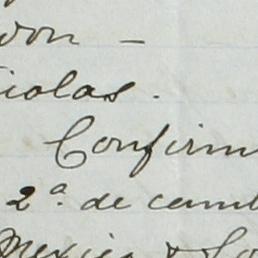 don —
colas.
Confirm
2ª. de camb
Mexico & Lo